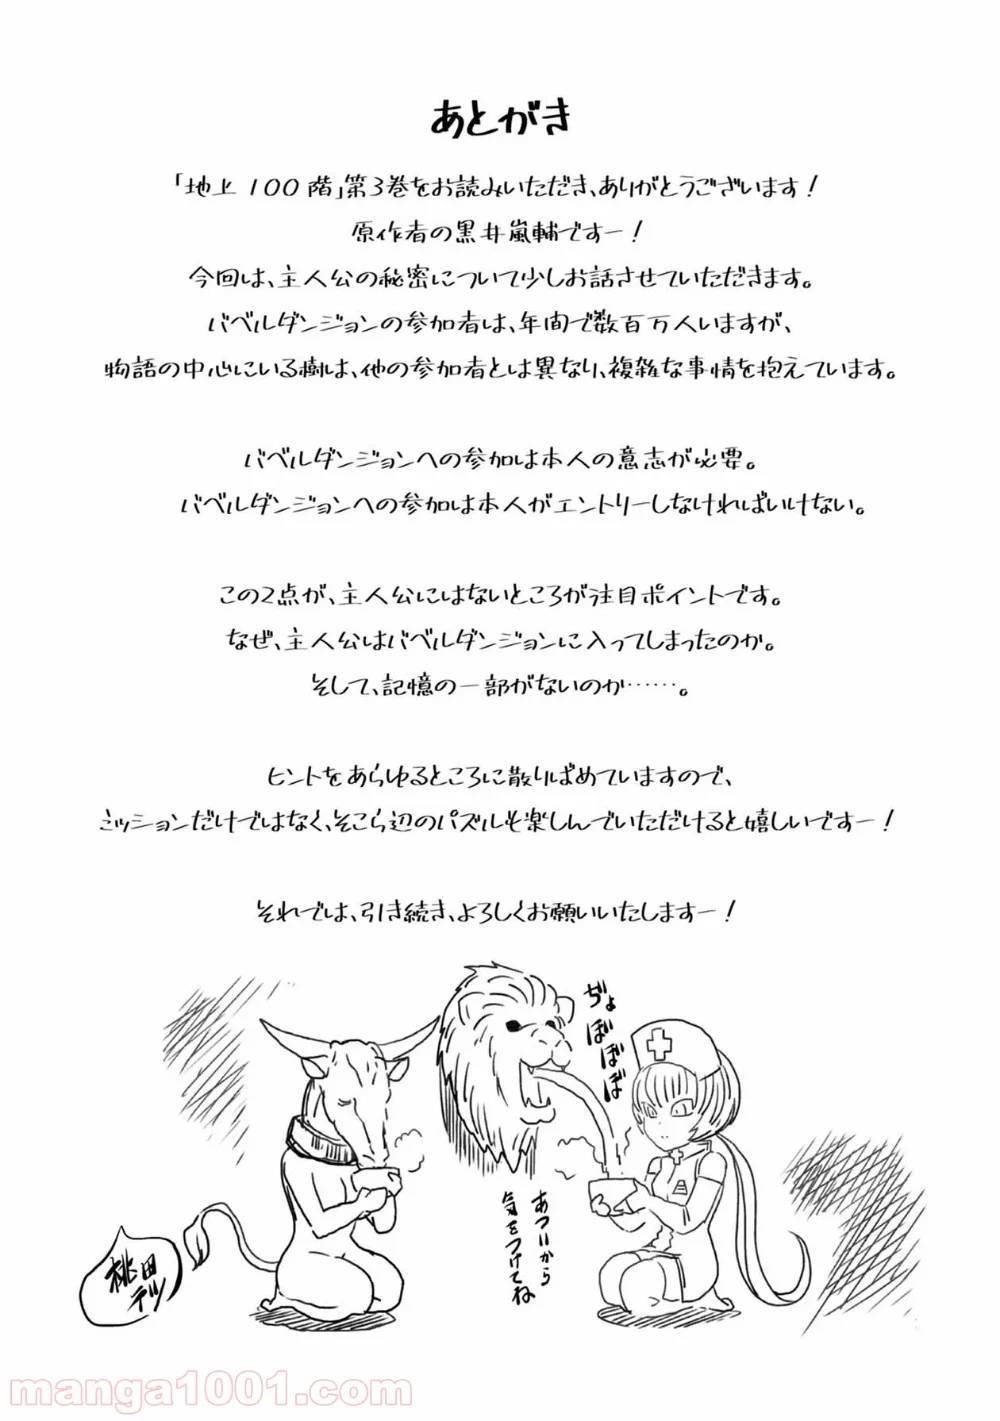 あとがき
「地上100階」第3巻をお読みいただき、ありがとうございます！
原作者の黒井嵐輔ですー！
今回は、主人公の秘密について少しお話させていただきます。
バベルダンジョンの参加者は、年間で数百万人いますが、
物語の中心にいる樹は、他の参加者とは異なり、複雑な事情を抱えています。
バベルダンジョンへの参加は本人の意志が必要。
バベルダンジョンへの参加は本人がエントリーしなければいけない。
この2点が、主人公にはないところが注目ポイントです。
なぜ、主人公はバベルダンジョンに入ってしまったのか。
そして、記憶の一部がないのか……。
ヒントをあらゆるところに散りばめていますので、
ミッションだけではなく、そこら辺のパズルも楽しんでいただけると嬉しいですー！
それでは、引き続き、よろしくお願いいたしますー！
ぢょ
ぼぼぼぼ
あついから
気をつけてね
桃田
テツ
manga1001.com